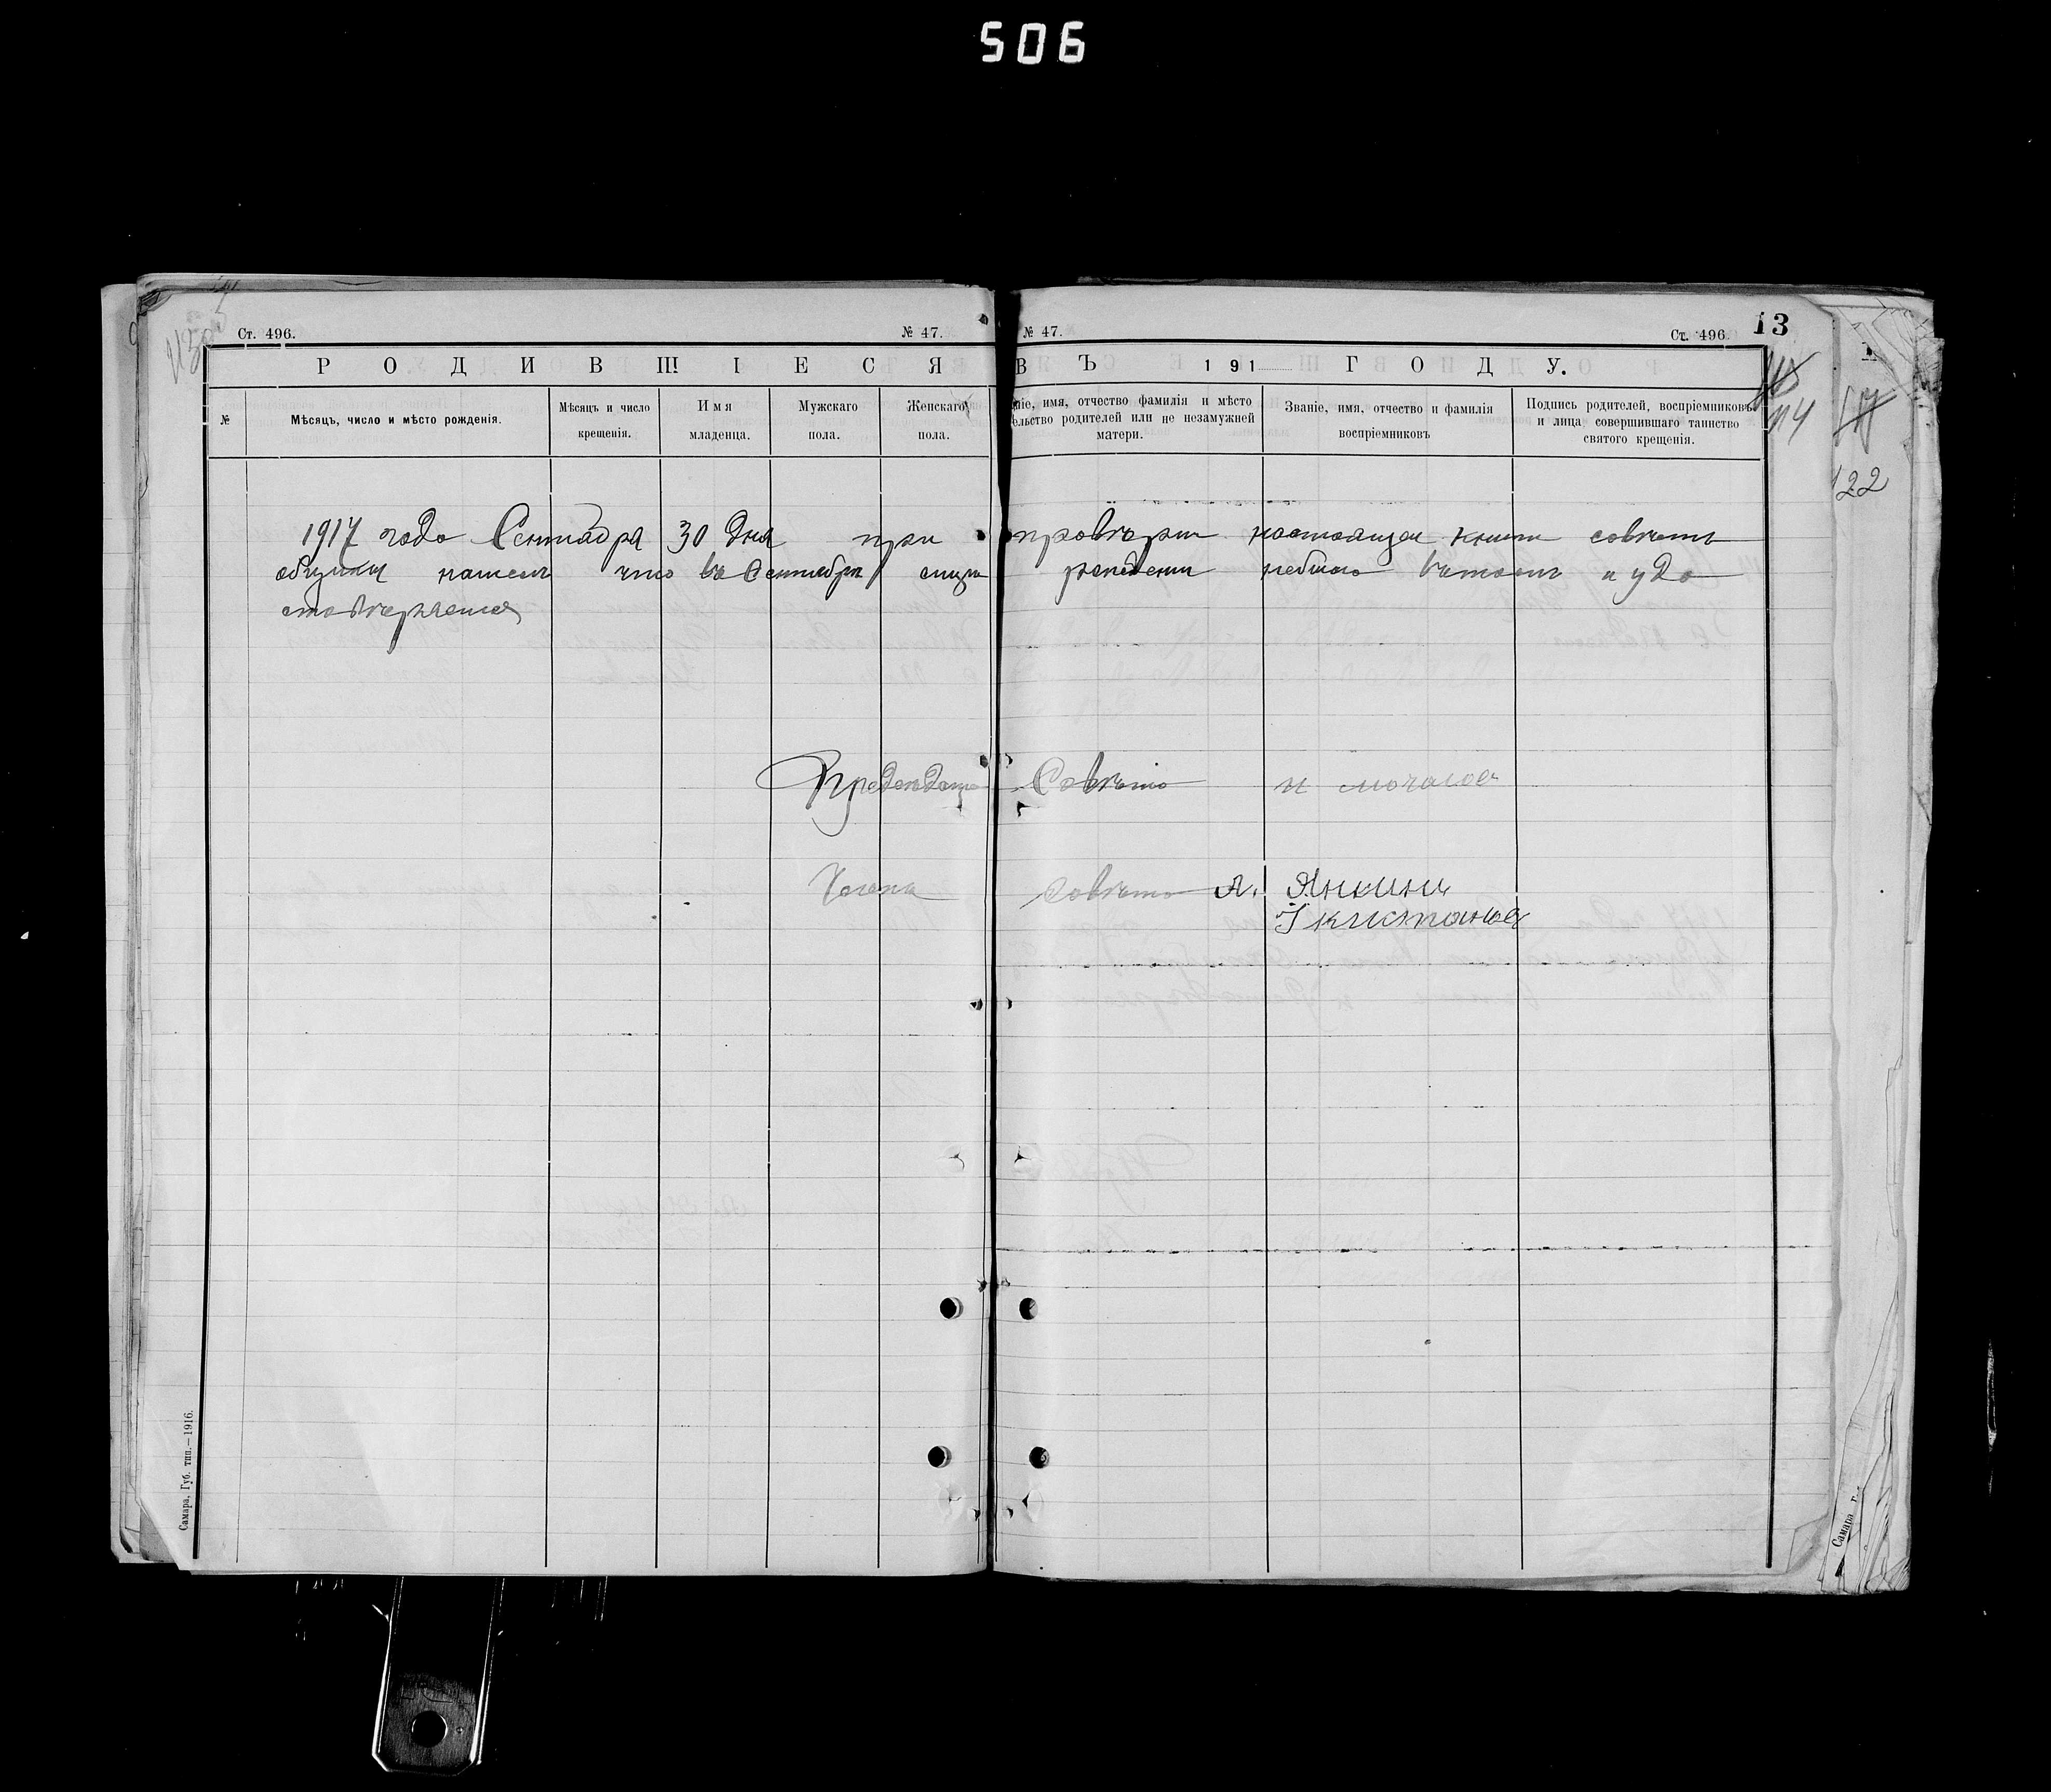 506
Ст. 496. № 47. № 47. Ст. 496. 13
РОДИВШІЕСЯ ВЪ 191 ГОДУ.
114
122
№
Мѣсяцъ, число и мѣсто рожденія.
Мѣсяцъ и число
крещенія.
Имя
младенца.
Мужскаго
пола.
Женскаго
пола.
ніе, имя, отчество фамилія и мѣсто
ельство родителей или не незамужней
матери.
Званіе, имя, отчество и фамилія
воспріемниковъ
Подпись родителей, воспріемниковъ
и лица совершившаго таинство
святого крещенія.
1917 года Сентября 30 Дня при провѣрки настоящей книги совѣтъ
общины нашелъ что въ Сентябрѣ рожденій небыло вѣтомъ и удо
стовѣряется
Предсѣдатель Совѣта и мочалов
Члена совѣта А. Янкинъ
Самара, Губ. тип.—1916.
Самара